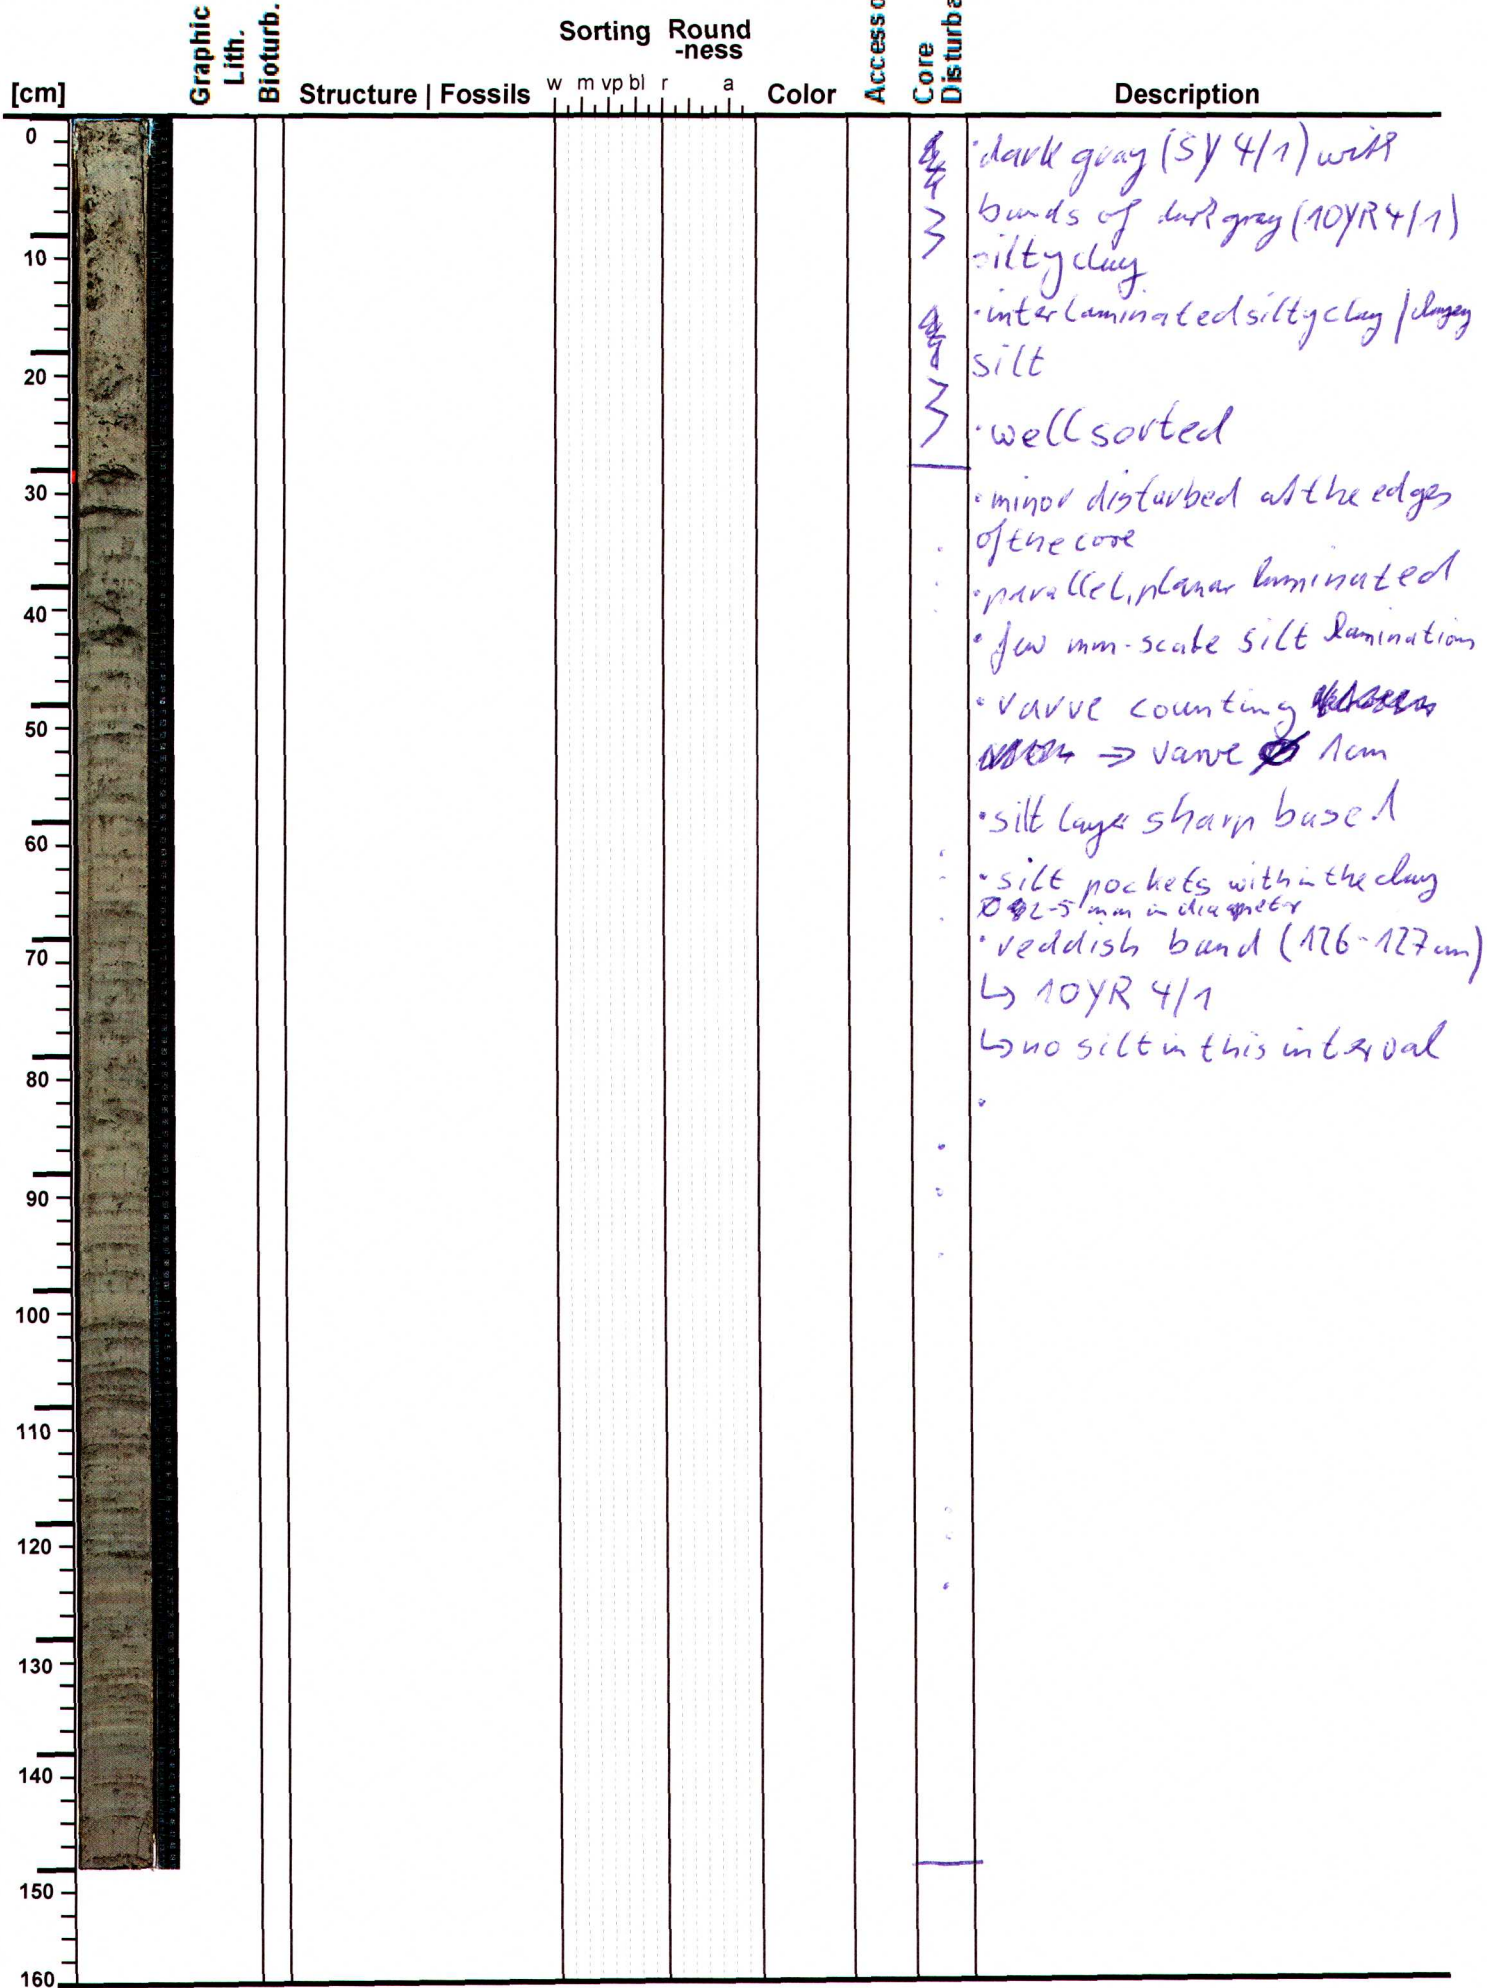 Graphic
Lith.
Bioturb.
Sorting Round
-ness
Core
[cm]
Structure | Fossils
w m vp bl r a
Color
Description
0
10
20
30
40
50
60
70
80
90
100
110
120
130
140
150
160
·dark gray (5Y 4/1) with
bands of dark gray (10YR 4/1)
silty clay
·interlaminated silty clay / clayey
silt
·well sorted
·minor disturbed at the edges
of the core
·parallel, planar laminated
·few mm-scale silt laminations
·varve counting
⇒ varve Ø 1cm
·silt layer sharp based
·silt pockets within the clay
2-5 mm in diameter
·reddish band (126-127 cm)
↳ 10YR 4/1
↳ no silt in this interval